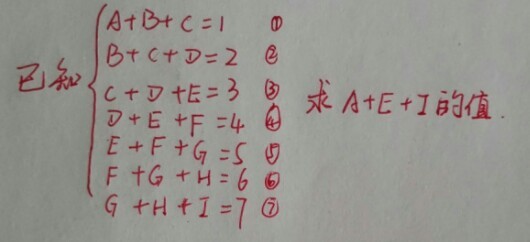 A+B+C=1 ①
B+C+D=2 ②
已知 C+D+E=3 ③ 求A+E+I的值.
D+E+F=4 ④
E+F+G=5 ⑤
F+G+H=6 ⑥
G+H+I=7 ⑦